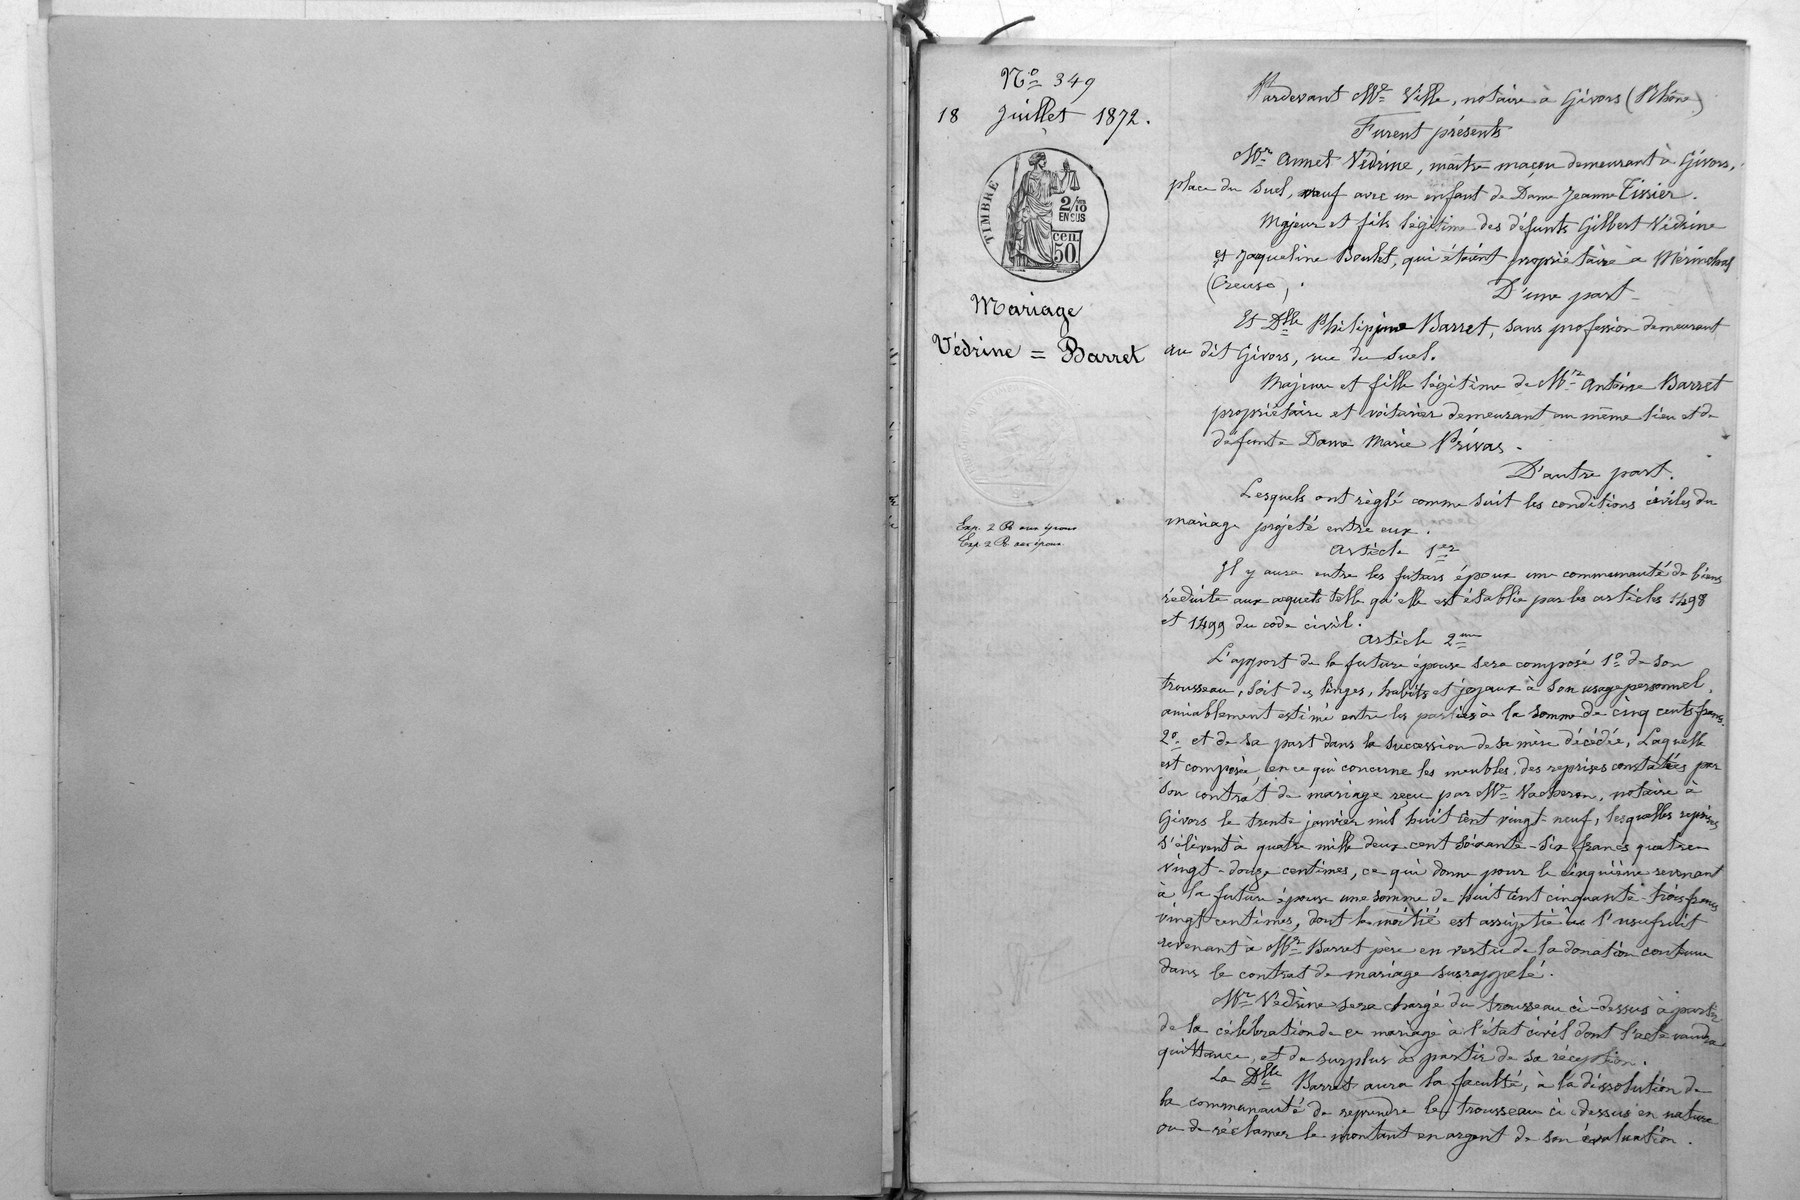 N° 349
18 Juillet 1872.
TIMBRE
2/10
EN SUS
cen.
50
Mariage
Védrine = Barret
Exp. 2 R. aux époux
Exp. 2 R. aux époux.
Pardevant Me Ville, notaire à Givors (Rhône)
Furent présents
Mr Annet Védrine, maître maçon demeurant à Givors,
place du Suel, veuf avec un enfant de Dame Jeanne Tissier.
Majeur et fils légitime des défunts Gilbert Védrine
et Jaqueline Boulet, qui étaient propriétaire à Mérinchal
(Creuse).
D'une part
Et Dlle Philipine Barret, sans profession demeurant
au dit Givors, rue du Suel.
Majeure et fille légitime de Mr Antoine Barret
propriétaire et voiturier demeurant au même lieu et de
défunte Dame Marie Privas.
D'autre part.
Lesquels ont règlé comme suit les conditions civiles du
mariage projeté entre eux.
Article 1er
Il y aura entre les futurs époux une communauté de biens
réduite aux acquets telle qu'elle est établie par les articles 1498
et 1499 du code civil.
Article 2eme
L'apport de la future épouse sera composé 1° de son
trousseau, soit des linges, habits et joyaux à son usage personnel,
amiablement estimé entre les parties à la somme de cinq cents francs.
2° et de sa part dans la succession de sa mère décédée, Laquelle
est composée, en ce qui concerne les meubles, des reprises constatées par
son contrat de mariage reçu par Me Vacheron, notaire à
Givors le trente janvier mil huit cent vingt-neuf, lesquelles reprises
s'élèvent à quatre mille deux cent soixante-six francs quatre
vingt-douze centimes, ce qui donne pour le cinquième revenant
à la future épouse une somme de huit cent cinquante-trois francs
vingt centimes, dont la moitié est assujetie à l'usufruit
revenant à Mr Barret père en vertu de la donation contenue
dans le contrat de mariage susrappelé.
Mr Védrine sera chargé du trousseau ci-dessus à partir
de la célébration de ce mariage à l'état civil dont l'acte vaudra
quittance, et du surplus à partir de sa réception.
La Dlle Barret aura la faculté, à la dissolution de
la communauté de reprendre le trousseau ci dessus en nature
ou de réclamer le montant en argent de son évaluation.